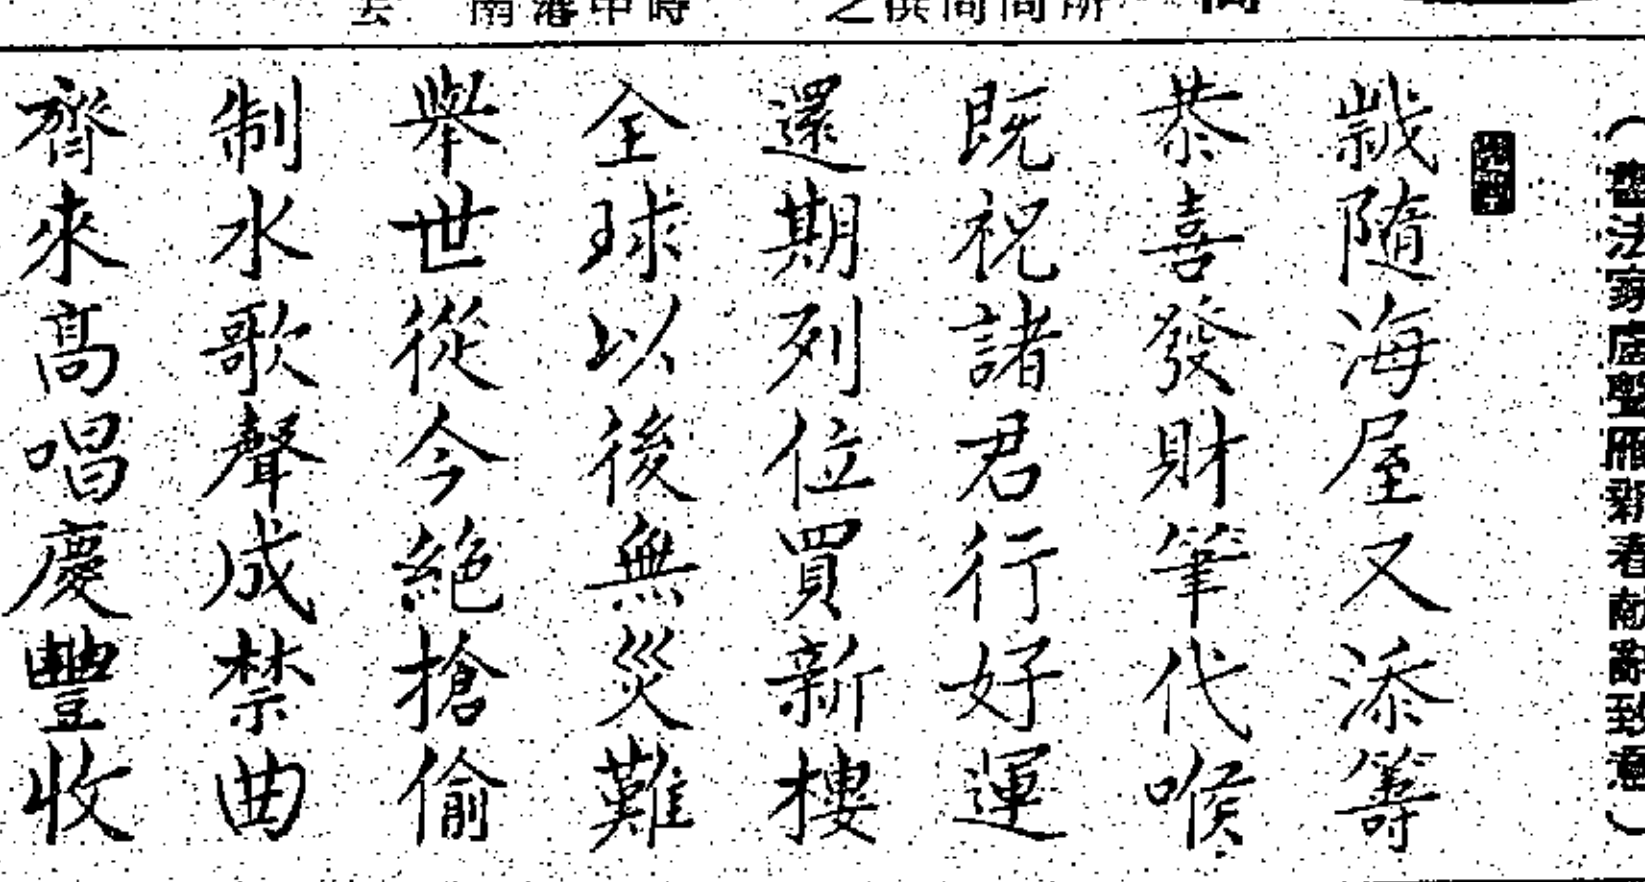 (書法家盧聖雁新春献辭致意)
歲隨海屋又添籌
恭喜發財筆代喉
既祝諸君行好運
還期列位買新樓
全球以後無災難
舉世從今絕搶偷
制水歌聲成禁曲
齊來高唱慶豐收